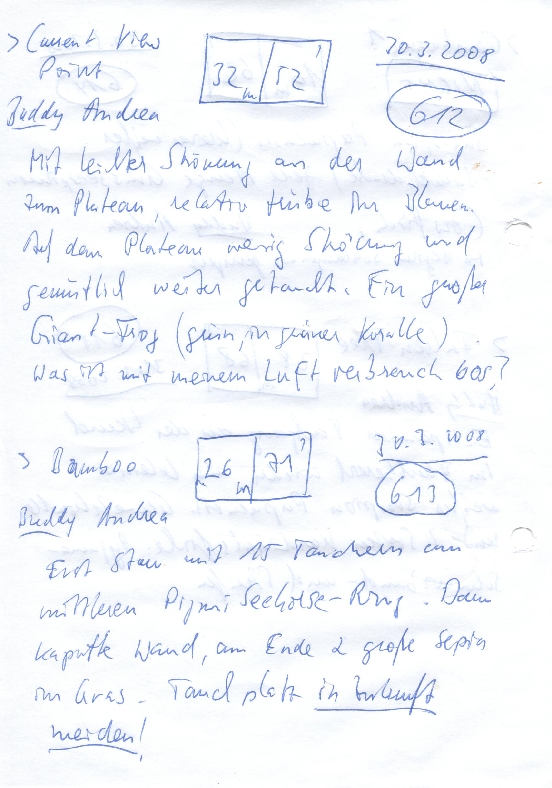 > Current View 32 m 52' 20.3.2008
Point 612
Buddy Andrea
Mit leichter Strömung an der Wand
zum Plateau, relativ trübe im Blauen.
Auf dem Plateau wenig Strömung und
gemütlich weiter getaucht. Ein großer
Giant-Frog (grün, in grüner Koralle)
Was ist mit meinem Luftverbrauch los?
> Bamboo 26 m 71' 613
Buddy Andrea
Erst Stau mit 15 Tauchern am
mittleren Pigmi Seehorse-Ring. Dann
kaputte Wand, am Ende 2 große Sepia
im Gras. Tauchplatz in Zukunft
meiden!